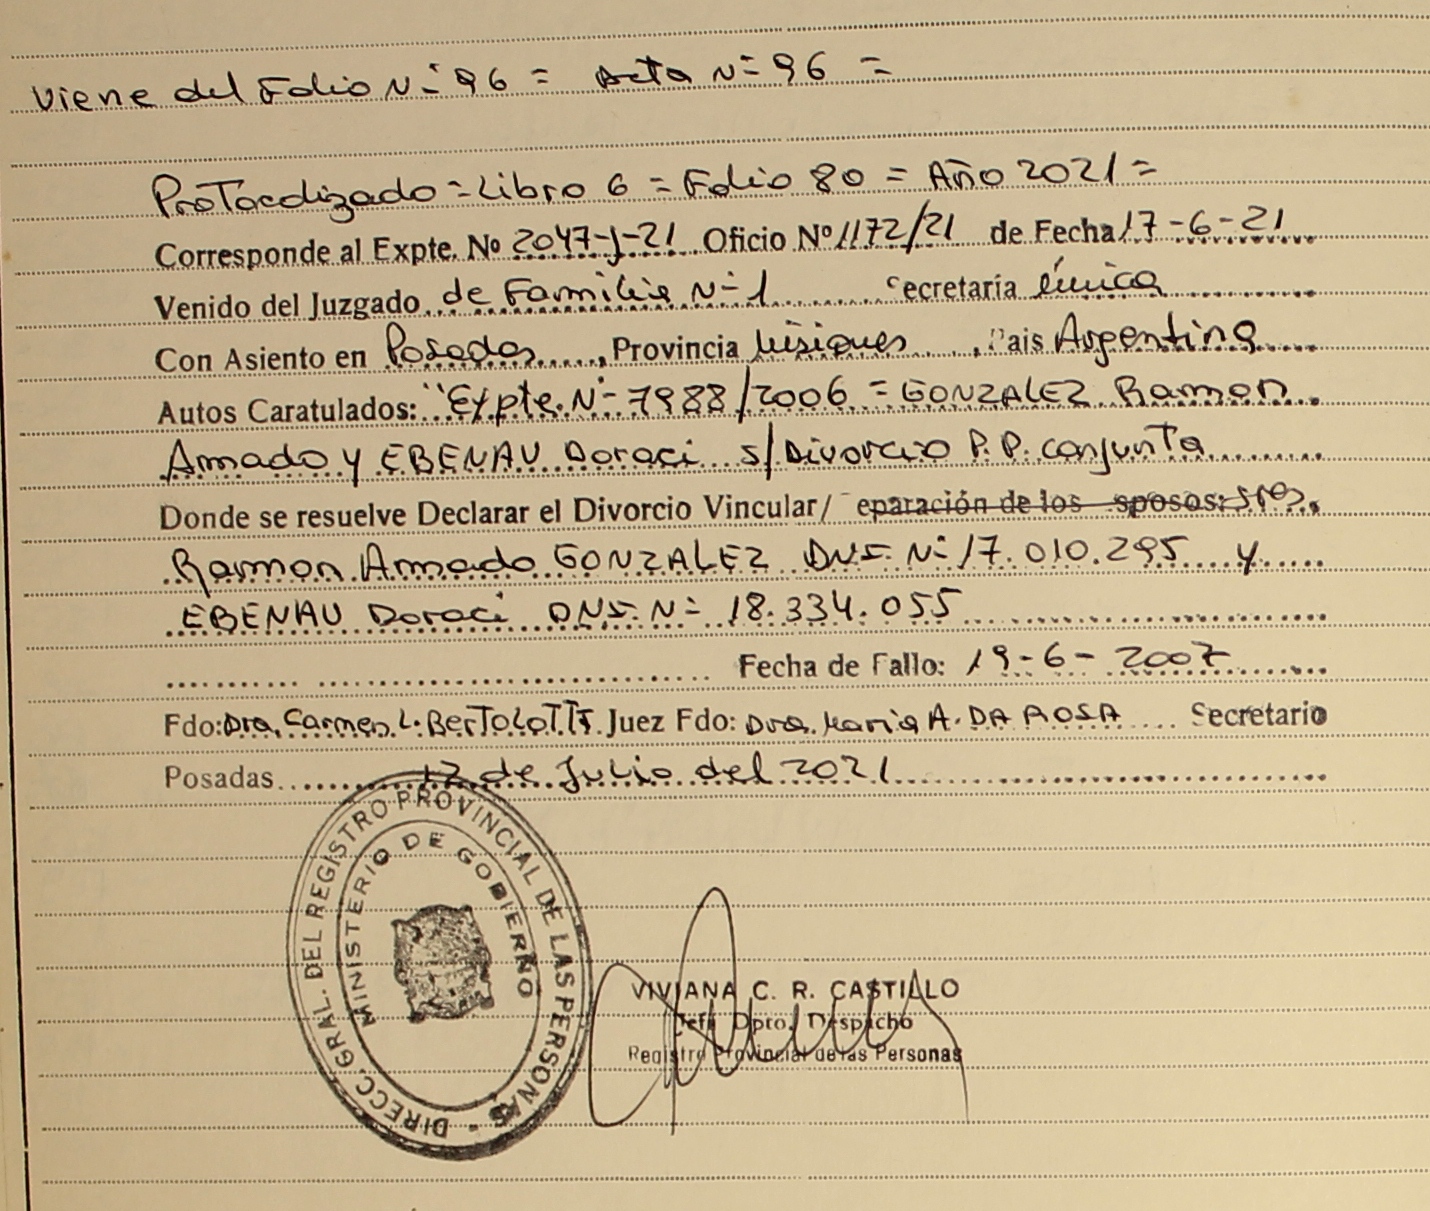 Viene del Folio Nº 96 = Acta Nº 96 =
Protocolizado = Libro 6 = Folio 80 = Año 2021 =
Corresponde al Expte. Nº 2047-J-21 Oficio Nº 1172/21 de Fecha 17-6-21
Venido del Juzgado de Familia Nº 1 ecretaría única
Con Asiento en Posadas, Provincia Misiones, Pais Argentina
Autos Caratulados: "Expte. Nº 7988/2006 = GONZALEZ Ramon
Amado y EBENAU Doraci s/Divorcio P.P. conjunta
Donde se resuelve Declarar el Divorcio Vincular/ eparación de los sposos: sres.
Ramon Amado GONZALEZ DNI. Nº 17.010.295 y
EBENAU Doraci DNI. Nº 18.334.055
Fecha de Fallo: 19-6-2007
Fdo: Dra. Carmen L. BERTOLOTTI Juez Fdo: Dra. Maria A. DA ROSA Secretario
Posadas 12 de Julio del 2021
DIRECC. GRAL. DEL REGISTRO PROVINCIAL DE LAS PERSONAS -
MINISTERIO DE GOBIERNO
VIVIANA C. R. CASTILLO
Jefa Dpto. Despacho
Registro Provincial de las Personas